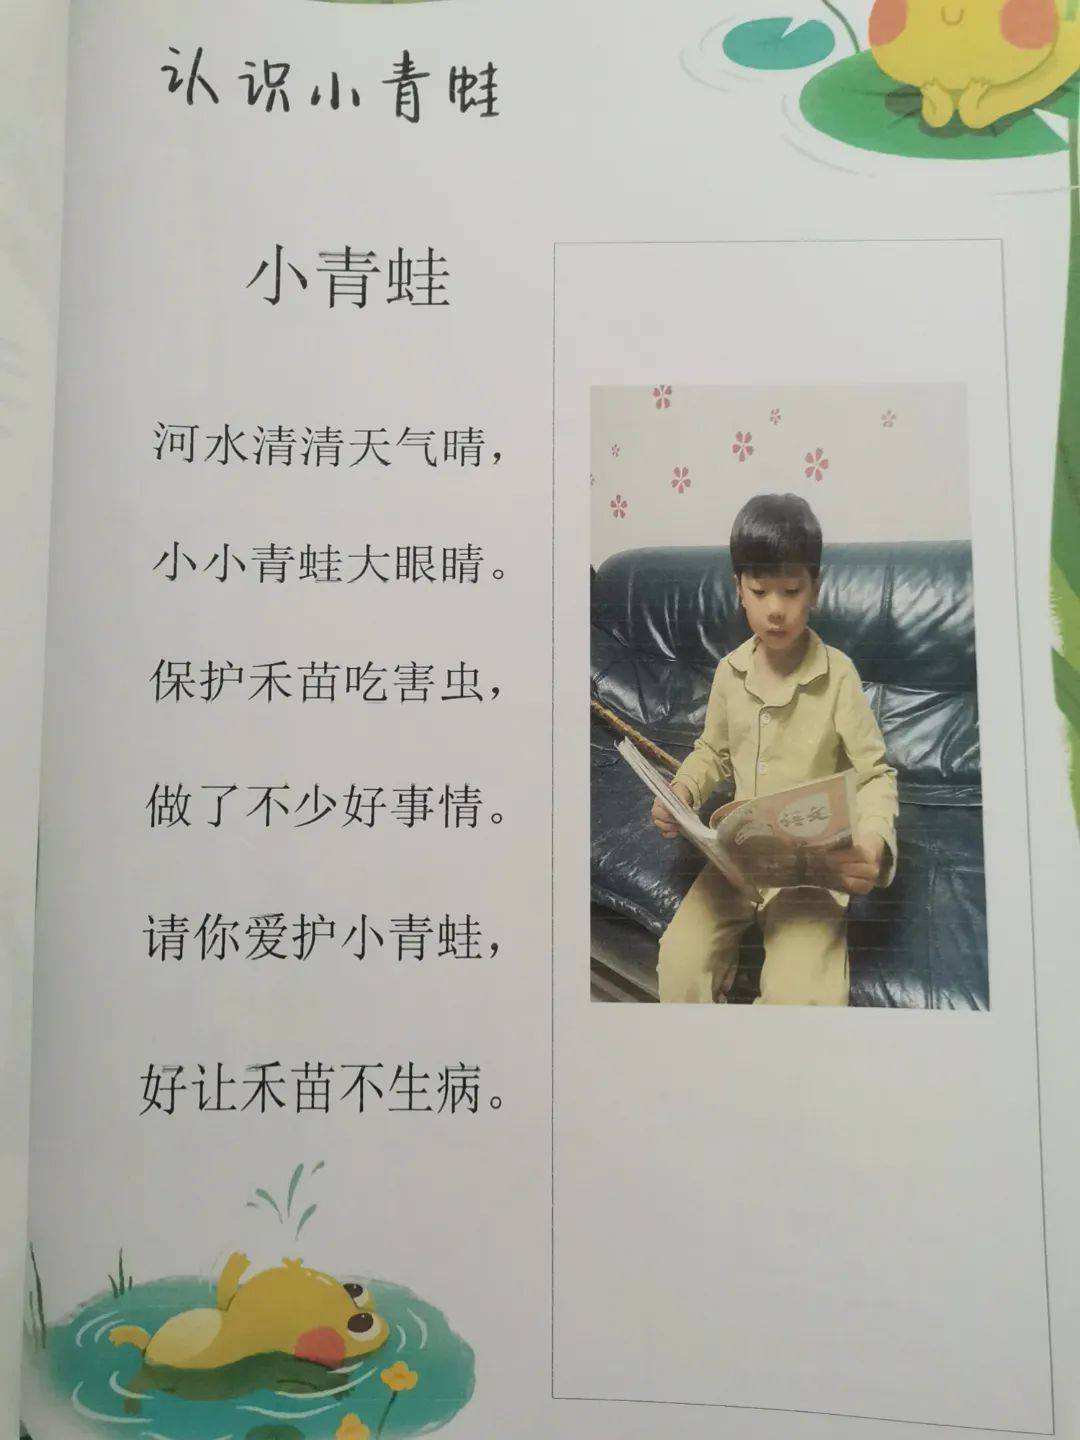 认识小青蛙
小青蛙
河水清清天气晴，
小小青蛙大眼睛。
保护禾苗吃害虫，
做了不少好事情。
请你爱护小青蛙，
好让禾苗不生病。
语文